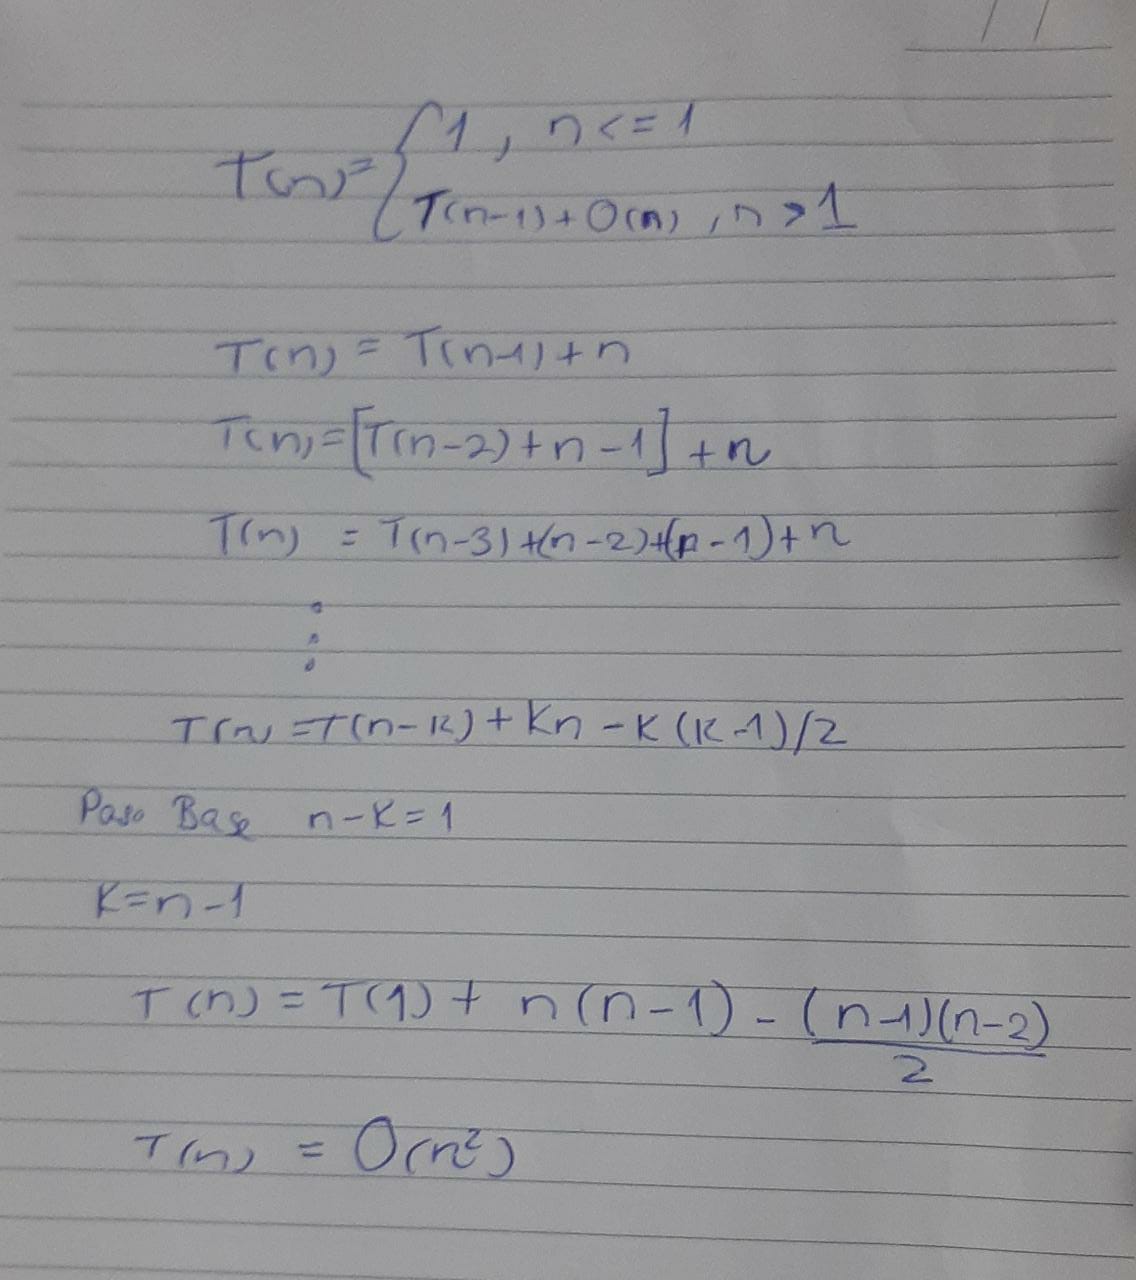 T(n)= { 1 , n <= 1
T(n-1) + O(n) , n > 1
T(n) = T(n-1) + n
T(n) = [T(n-2) + n - 1] + n
T(n) = T(n-3) + (n-2) + (n-1) + n
T(n) = T(n-k) + kn - k(k-1)/2
Paso Base n-k=1
k=n-1
T(n) = T(1) + n(n-1) - (n-1)(n-2)
2
T(n) = O(n²)